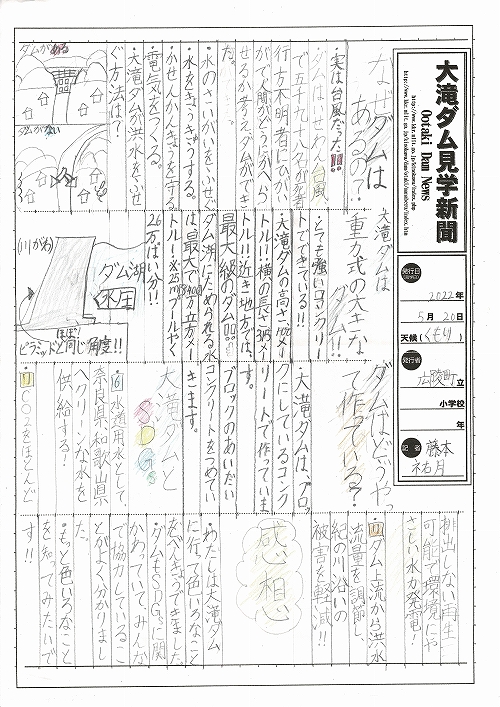 大滝ダム見学新聞
Ootaki Dam News
発行日
2022年
5月20日
天候(くもり)
発行者
広陵町立
小学校
年
記者
藤本
祐月
なぜダムは
あるの?
実は台風だった!!
で五千九八名が死者
行方不明者にひが
がで人間がどうにかへら
せるか考えダムができ
た。
・水のさいがいをふせぐ
・水をきょうきゅうする。
・かせんかんきょうを守る
・電気をつくる。
・大滝ダムが洪水をふせ
ぐ方法は?
ダムがある
ダムがない
大滝ダムは
重力式の大きな
ダム!!
・とても強いコンクリー
トでできている!!
・大滝ダムの高さ100メー
トル!!横の長さ315メー
トル!!近き地方では、
最大級のダム!!
ダム湖にためられる水
は最大で8400万立方メー
トル!※25mプールやく
26万ぱい分!!
ダム湖
水圧
(川がわ)
ピラミッドとほぼ同じ角度!!
ダムはどうやっ
て作っている?
・大滝ダムは、ブロッ
クにしているコンク
リートで作っていま
す。
ブロックのあいだい
コンクリートをつめてい
きます。
大滝ダムと
SDGs
⑥水道用水として、
奈良県、和歌山県
へクリーンな水を
供給する!
CO2をほとんど
排出しない再生
可能で環境にや
さしい水力発電!
ダム上流から洪水
流量を調節し、
紀の川沿いの
被害を軽減!!
感想
わたしは大滝ダム
に行って色いろなこと
をべんきょうできました。
ダムもSDGsに関
かわっていて、みんな
で協力しているこ
とがよく分かりまし
た。
・もっと色いろなこと
を知ってみたいで
す!!